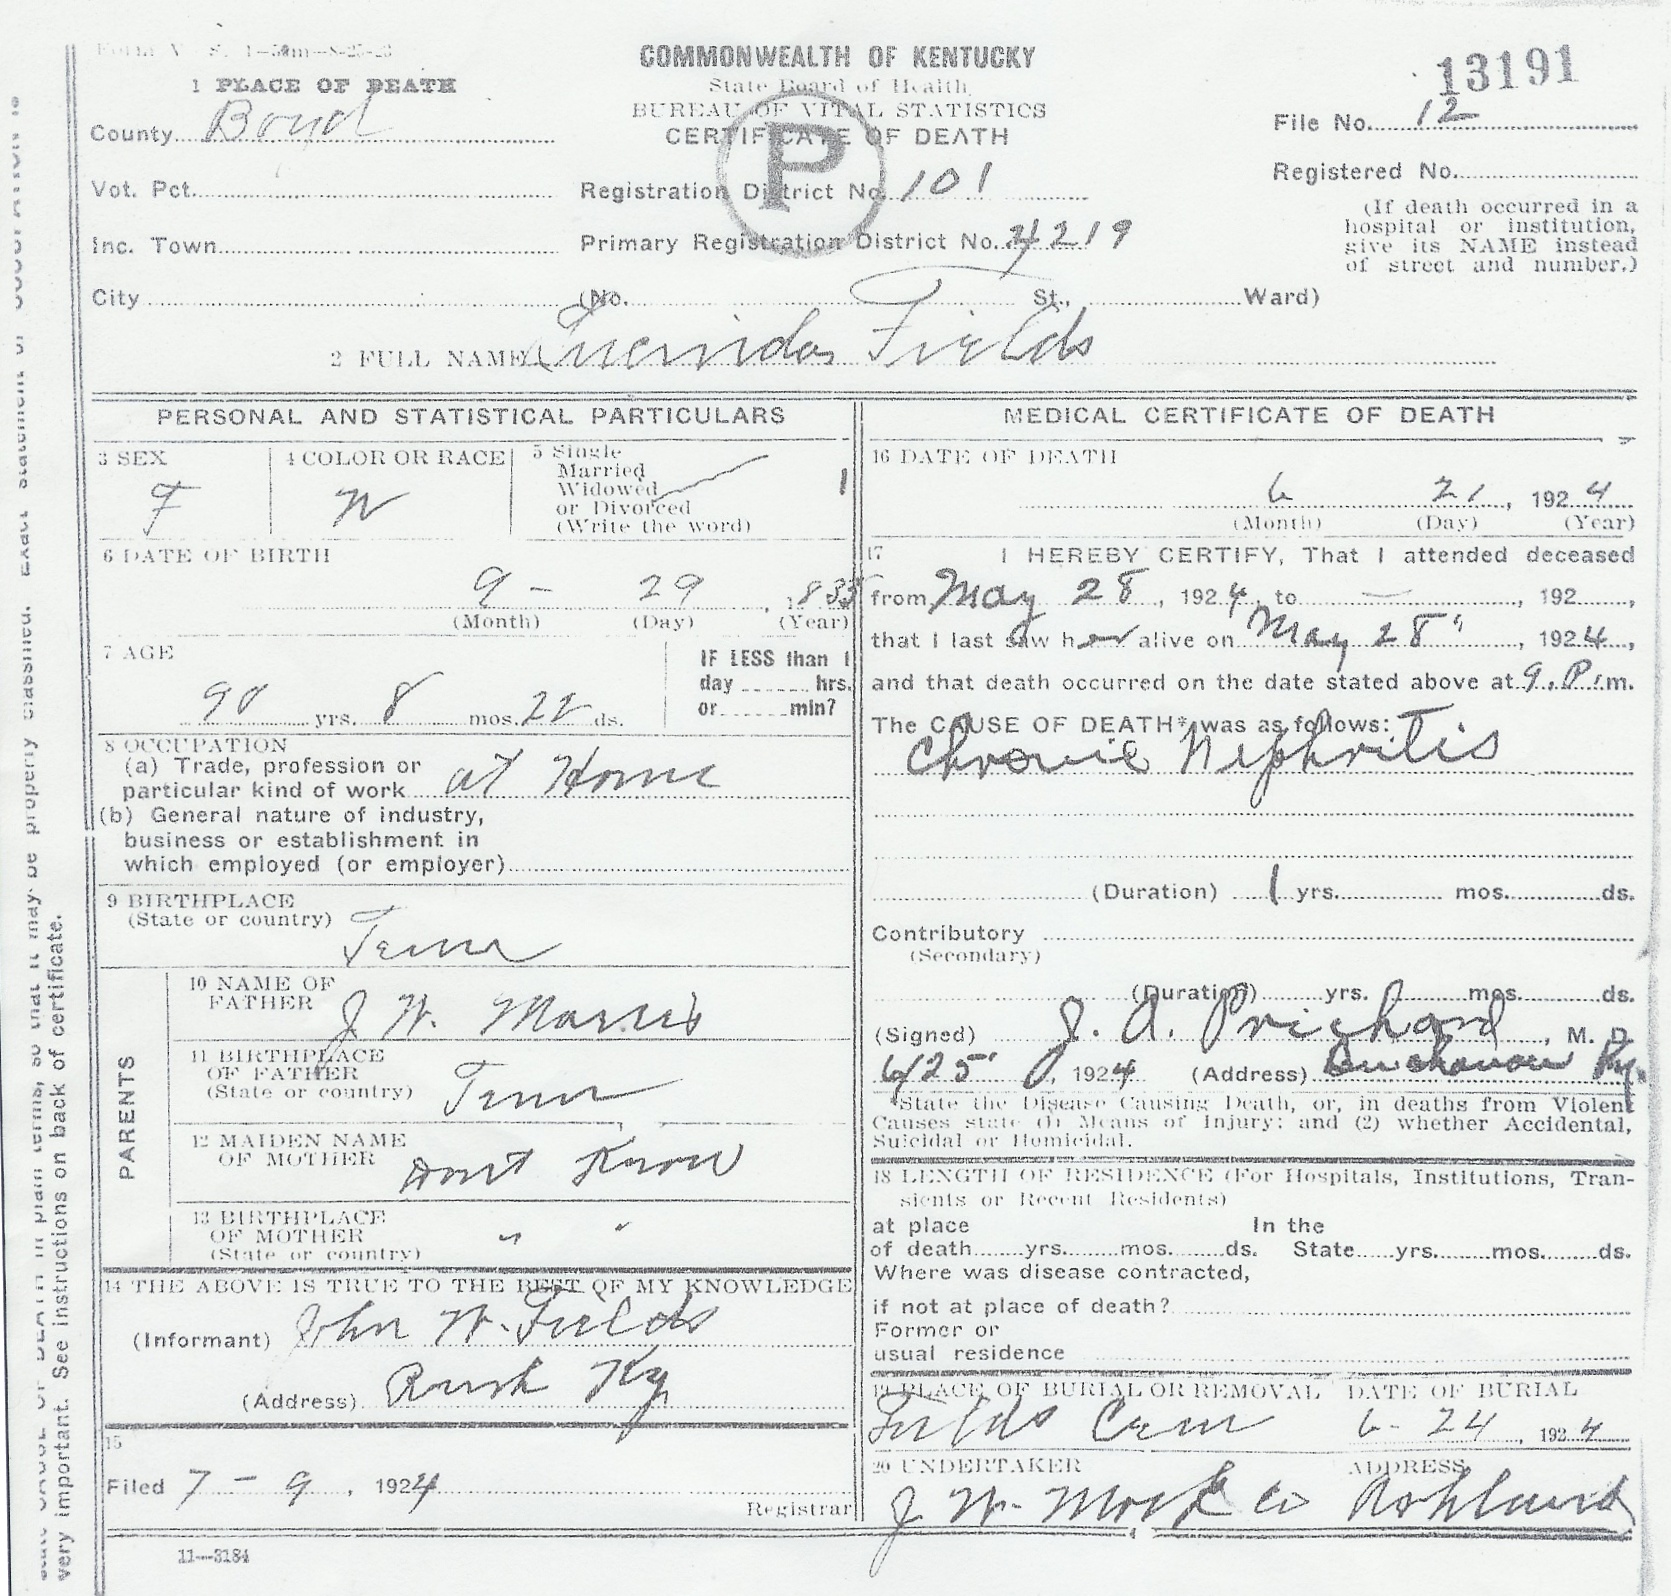 Form V. S. 1-50m-8-25-23
COMMONWEALTH OF KENTUCKY
State Board of Health
BUREAU OF VITAL STATISTICS
CERTIFICATE OF DEATH
P
13191
1 PLACE OF DEATH
County Boyd
File No. 12
Vot. Pct.
Registration District No. 101
Registered No.
Inc. Town
Primary Registration District No. 4219
(If death occurred in a
hospital or institution,
give its NAME instead
of street and number.)
City (No. St., Ward)
2 FULL NAME Fields
PERSONAL AND STATISTICAL PARTICULARS
3 SEX F
4 COLOR OR RACE W
5 Single
Married
Widowed
or Divorced
(Write the word)
1
6 DATE OF BIRTH
9 - 29, 1835
(Month) (Day) (Year)
7 AGE
90 yrs. 8 mos. 22 ds.
IF LESS than 1
day ...... hrs.
or ...... min?
8 OCCUPATION
(a) Trade, profession or
particular kind of work at Home
(b) General nature of industry,
business or establishment in
which employed (or employer)
9 BIRTHPLACE
(State or country) Tenn
PARENTS
10 NAME OF
FATHER J. W.
11 BIRTHPLACE
OF FATHER
(State or country) Tenn
12 MAIDEN NAME
OF MOTHER Dont Know
13 BIRTHPLACE
OF MOTHER
(State or country) " "
14 THE ABOVE IS TRUE TO THE BEST OF MY KNOWLEDGE
(Informant) John W. Fields
(Address) Rush Ky
15
Filed 7 - 9, 1924
Registrar
11-3184
MEDICAL CERTIFICATE OF DEATH
16 DATE OF DEATH
6 21, 1924
(Month) (Day) (Year)
17 I HEREBY CERTIFY, That I attended deceased
from May 28, 1924, to —, 192 ,
that I last saw her alive on May 28", 1924,
and that death occurred on the date stated above at 9. P. m.
The CAUSE OF DEATH* was as follows:
Chronic Nephritis
(Duration) 1 yrs. mos. ds.
Contributory
(Secondary)
(Duration) yrs. mos. ds.
(Signed) J. A. Prichard, M. D.
6/25, 1924 (Address) Buchanan Ky.
*State the Disease Causing Death, or, in deaths from Violent
Causes state (1) Means of Injury; and (2) whether Accidental,
Suicidal or Homicidal.
18 LENGTH OF RESIDENCE (For Hospitals, Institutions, Tran-
sients or Recent Residents)
at place In the
of death yrs. mos. ds. State yrs. mos. ds.
Where was disease contracted,
if not at place of death?
Former or
usual residence
19 PLACE OF BURIAL OR REMOVAL DATE OF BURIAL
Fields Cem 6 - 24, 1924
20 UNDERTAKER ADDRESS
J. W. Co Ashland
very important. See instructions on back of certificate.
state CAUSE OF DEATH in plain terms, so that it may be properly classified. Exact statement of OCCUPATION is